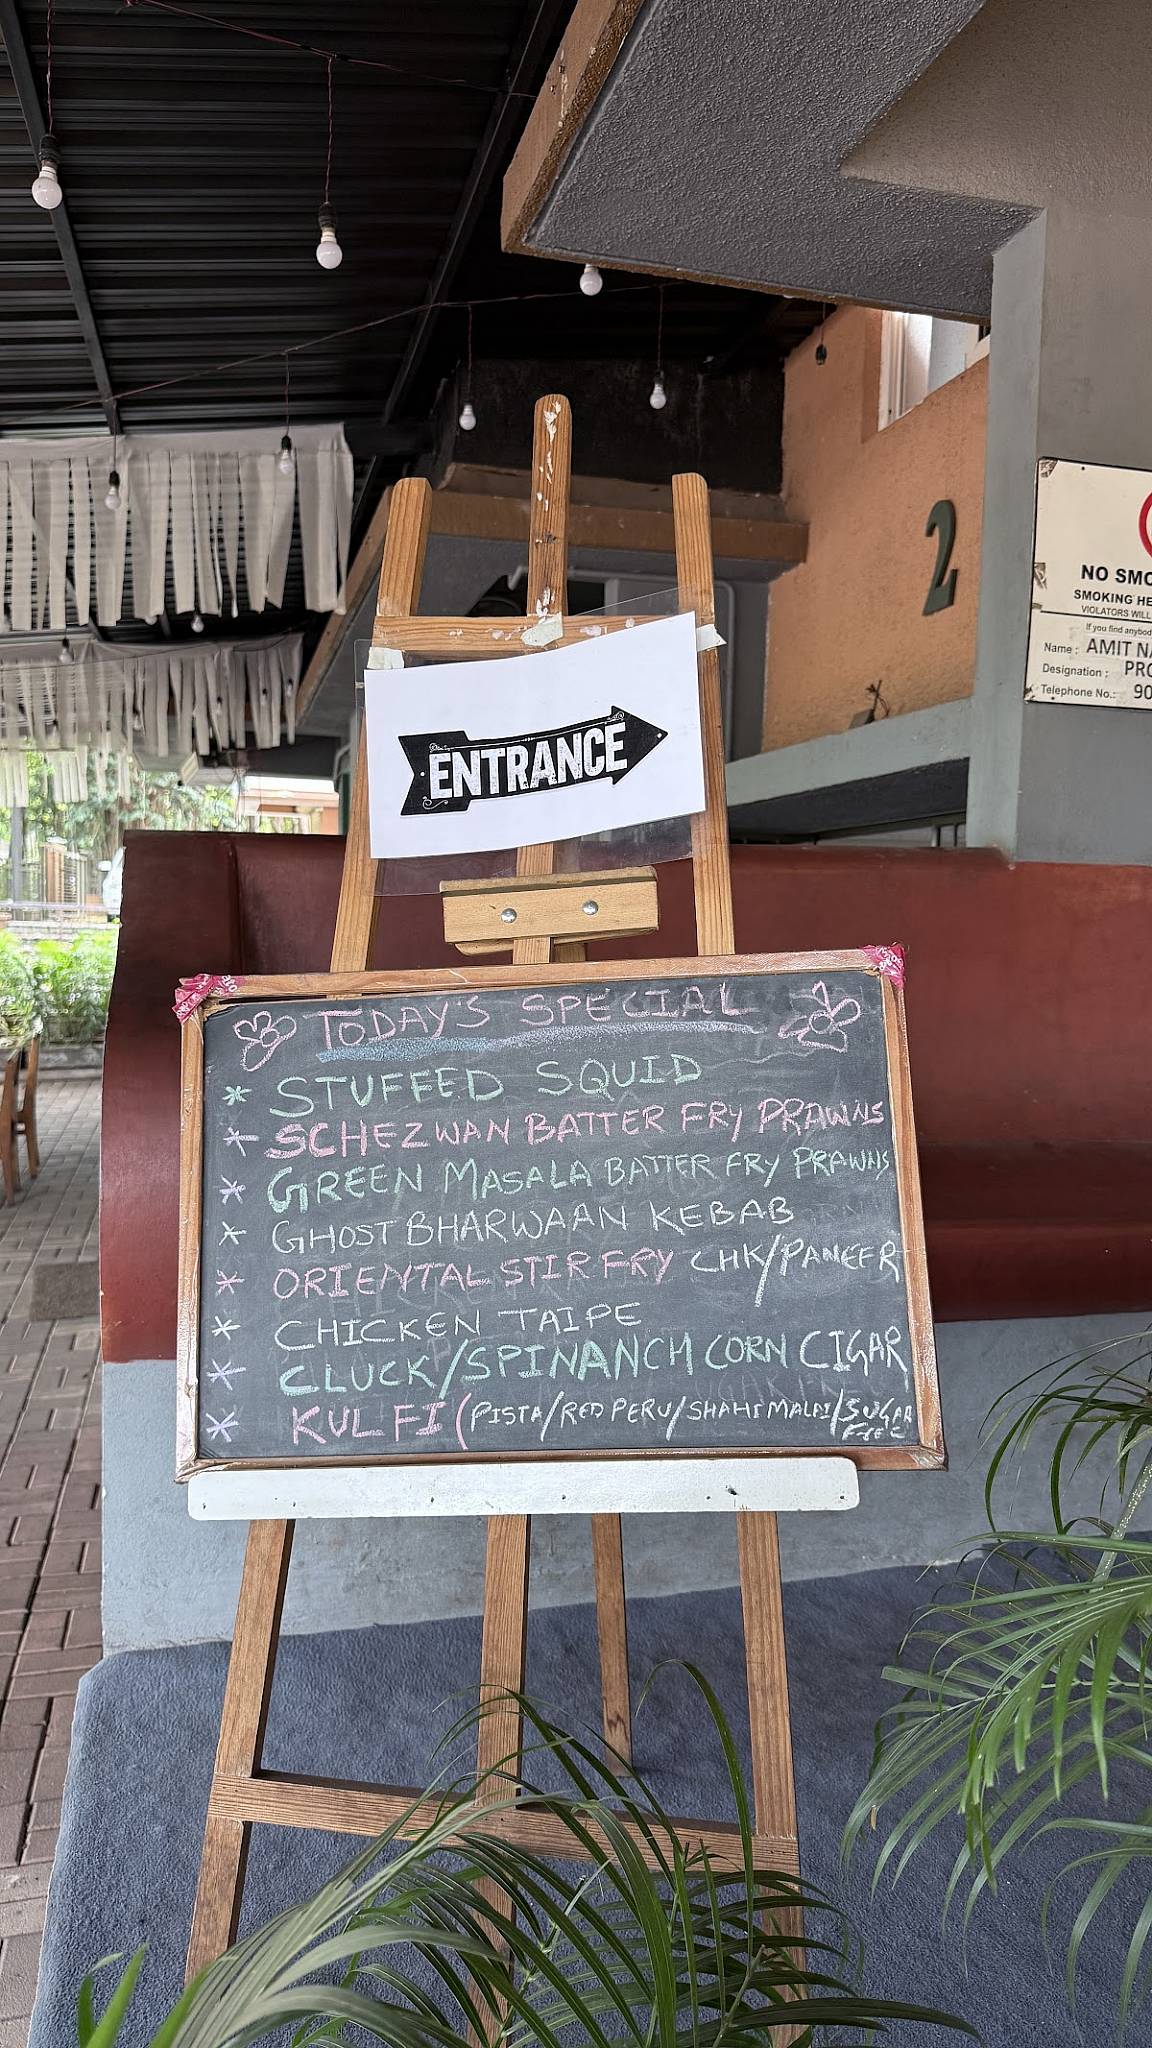 ENTRANCE
2
NO SMO
SMOKING HE
VIOLATORS WILL
If you find anybod
Name : AMIT NA
Designation : PRO
Telephone No.: 90
TODAY'S SPECIAL
* STUFFED SQUID
* SCHEZWAN BATTER FRY PRAWNS
* GREEN MASALA BATTER FRY PRAWNS
* GHOST BHARWAAN KEBAB
* ORIENTAL STIR FRY CHK/PANEER
* CHICKEN TAIPE
* CLUCK/SPINANCH CORN CIGAR
* KULFI (PISTA/RED PERU/SHAHI MALAI/SUGAR FREE